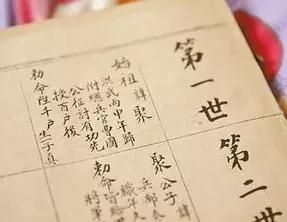 第一世
始祖諱聚
洪武丙申年歸
附總兵官曹國
公征討有功先
授百戶後
勅命陞千戶生一子
第二世
聚公子諱
兵部
職年
勅命
將